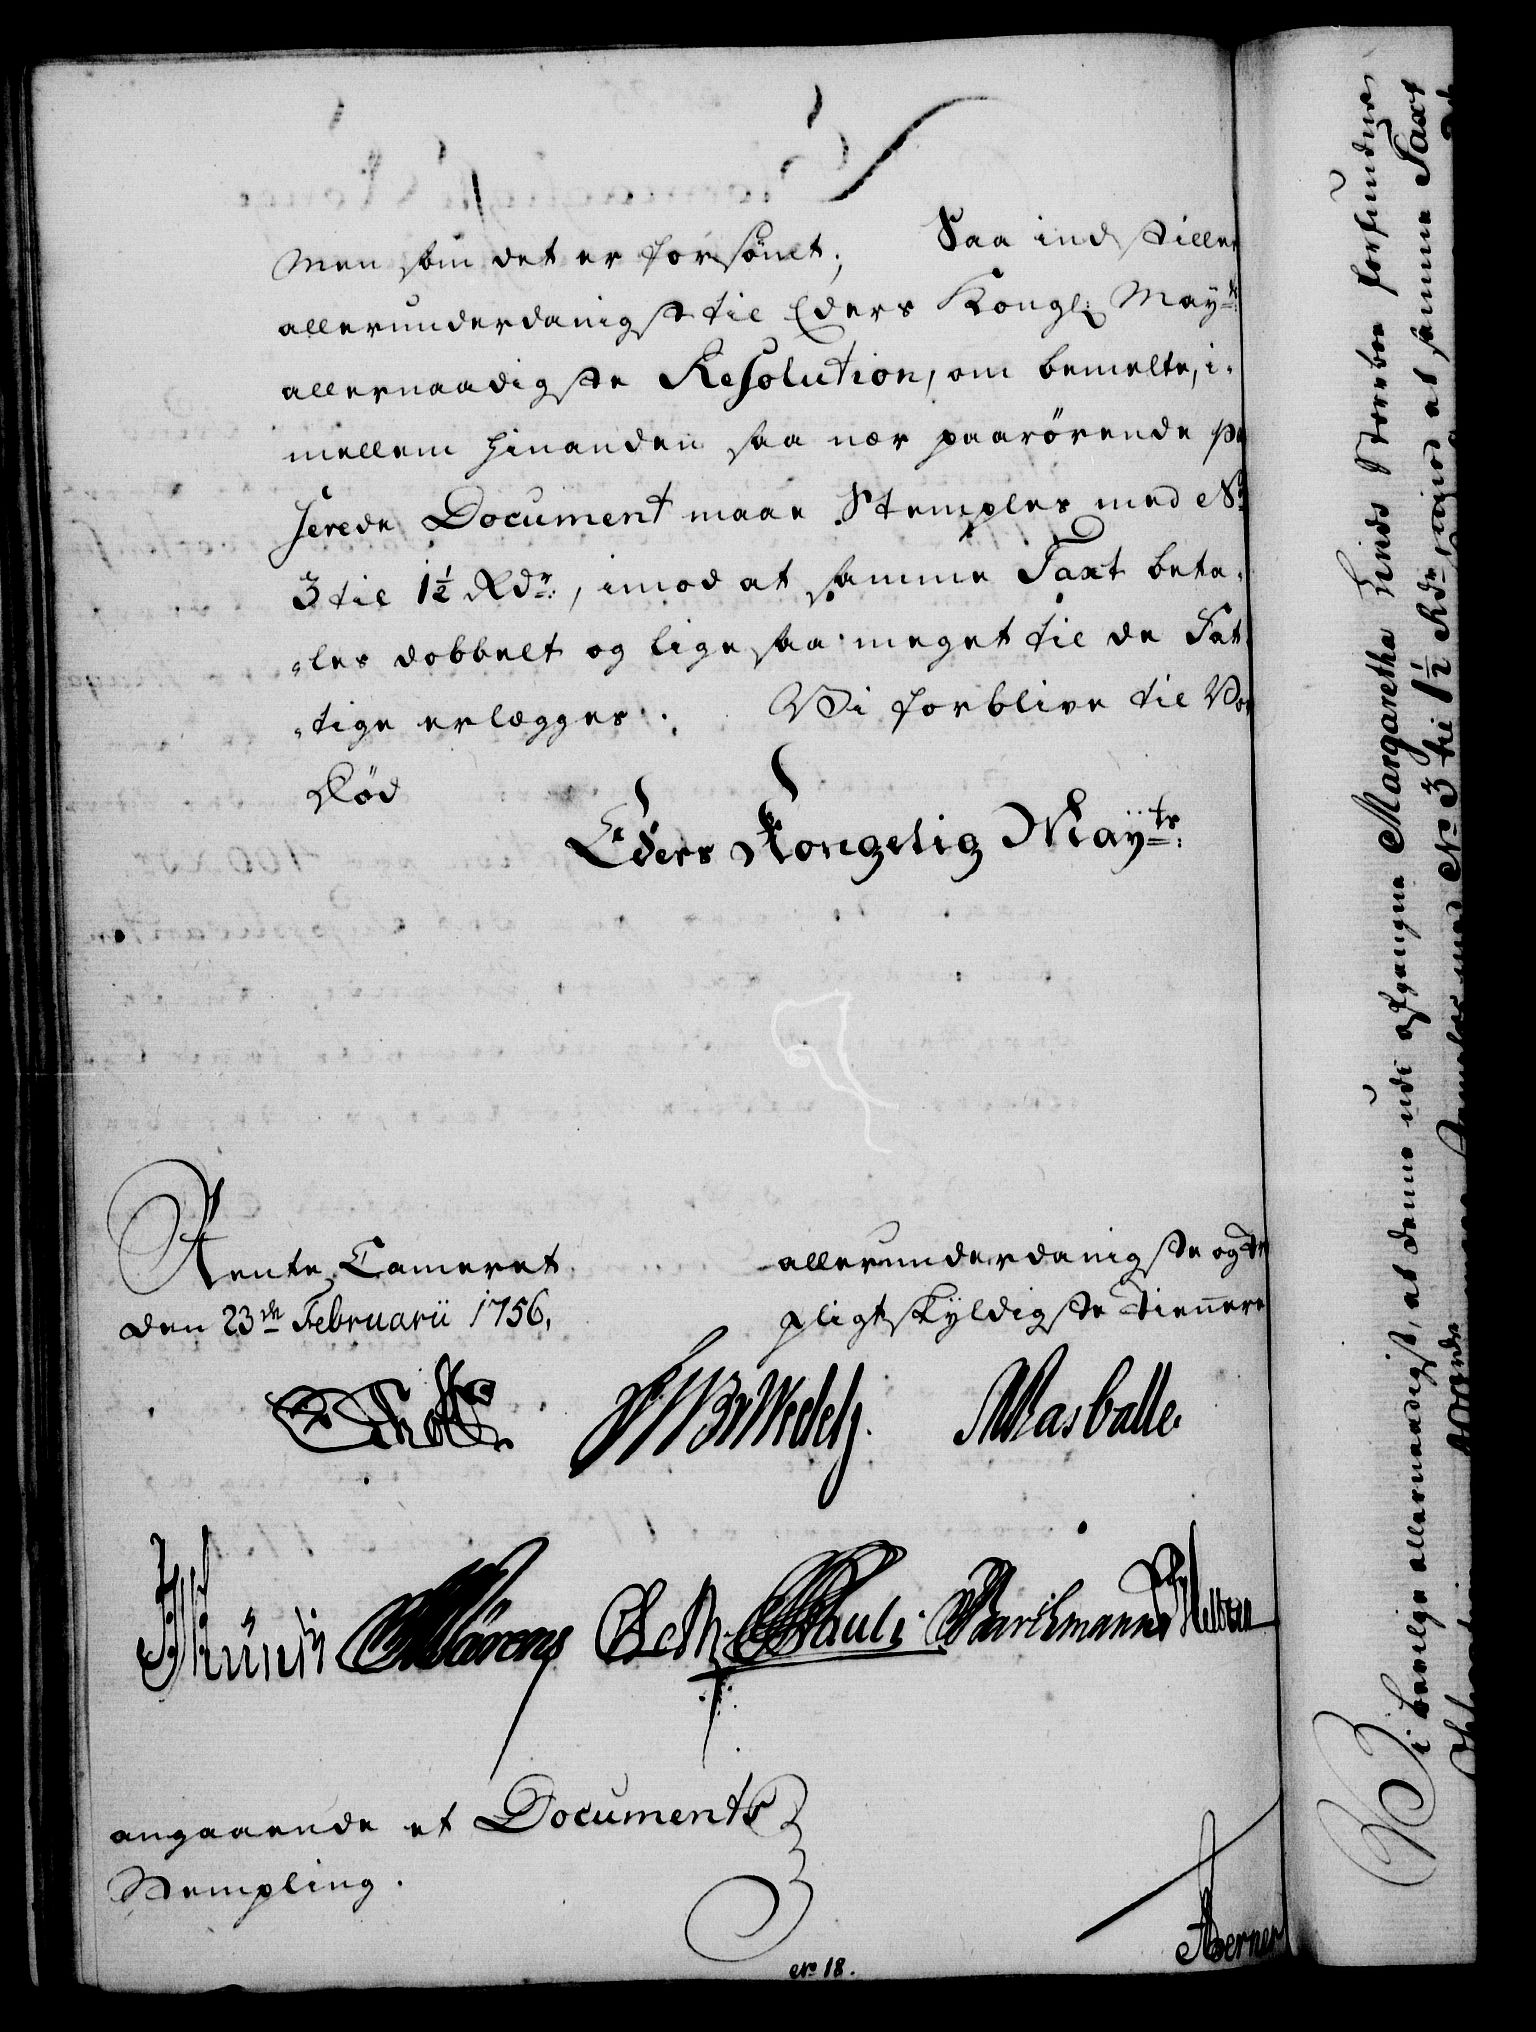 Men som det er forsømt; Saa indstilles
allerunderdanigst til Eders Kongl: May:ts
allernaadigste Resolution, om bemelte, i-
mellem hinanden saa nær paarørende pa
serede Document maae Stemples med No
3 til 1½ Rdr:, imod at samme Taxt beta-
-les dobbelt og lige saa meget til de Fat-
-tige erlægges. Wi forblive til Vor
Død
Eders Kongelig May:ts
Rente Cammeret
den 23de Februarii 1756.
allerunderdanigste og
pligtskyldigste Tiennere
Wedel Wasballe.
Pauli Barchmann
angaaende et Documents
Stempling.
No 18.
Wi bevilge allernaadigst, at denne udi afgangne Margaretha Hinds Sterboe forfundne
No 3 til 1½ Rdr, imod at samme Taxt